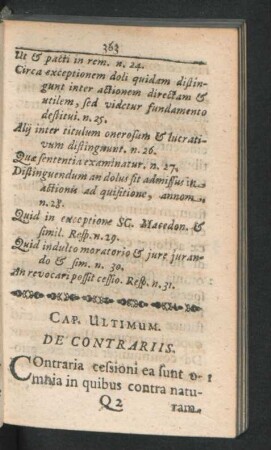 363
Ut & pacti in rem. n. 24.
Circa exceptionem doli quidam distin-
gunt inter actionem directam &
utilem, sed videtur fundamento
destitui. n. 25.
Alij inter titulum onerosum & lucrati-
vum distingunt. n. 26.
Quæ sententia examinatur. n. 27.
Distinguendum an dolus sit admissus in
actionis ad quisitione, an non,
n. 28.
Quid in exceptione SC. Macedon. &
simil. Resp. n. 29.
Quid indulto moratorio & jure juran-
do & sim. n. 30.
An revocari possit cessio. Resp. n. 31.
CAP. ULTIMUM.
DE CONTRARIIS.
COntraria cessioni ea sunt o- 1
mnia in quibus contra natu-
Q 2 ram